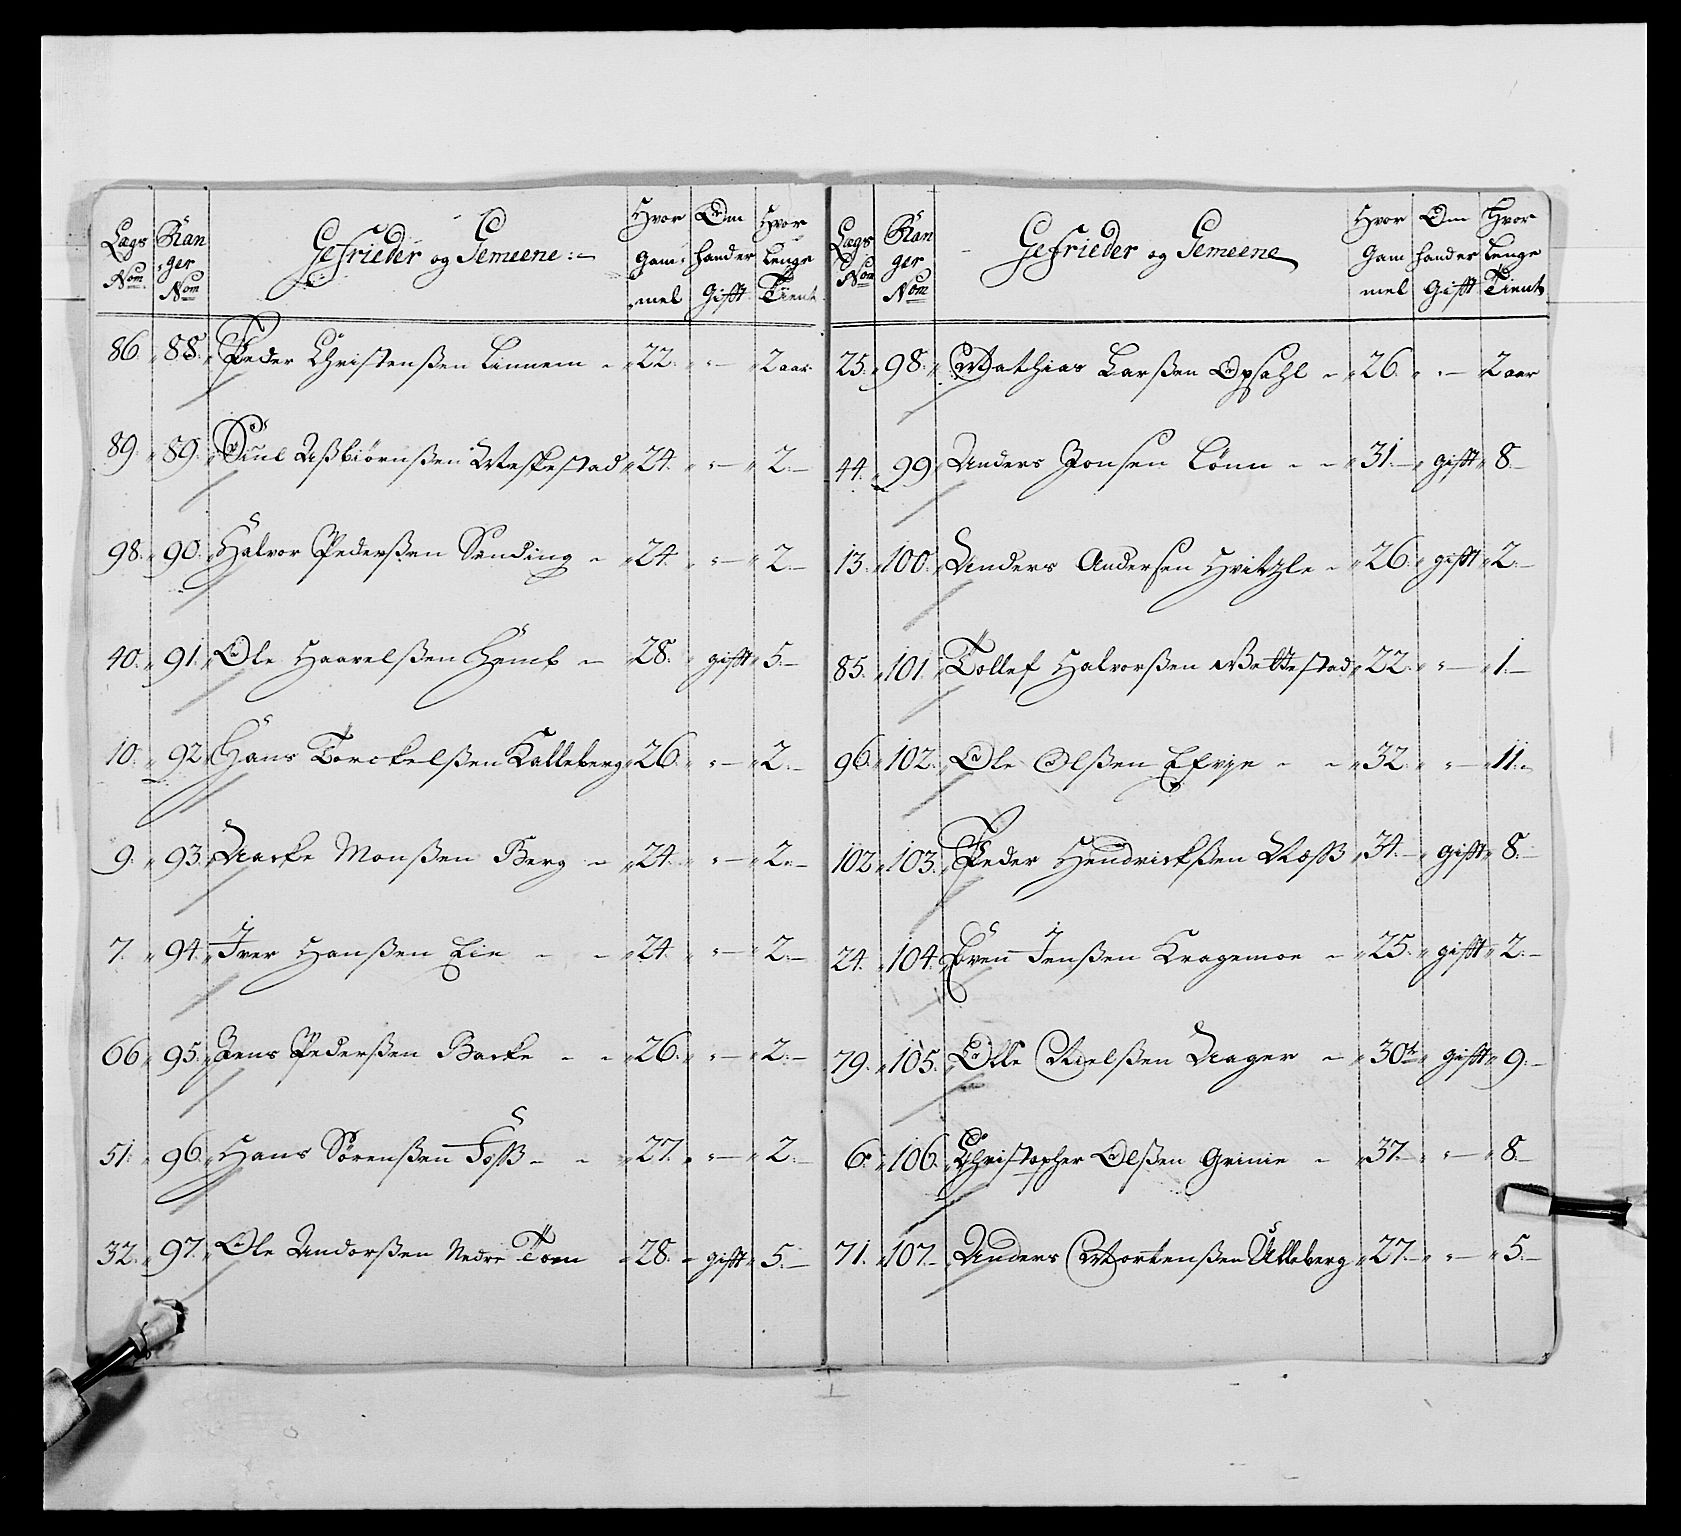 Lægs Nom. Ran ger Nom Gefrieder og Gemeene:- Hvor Gam mel Om hand er Gifft Hvor lenge Tient
86. 88. Peder Christenßen Linnem - 22. - 2 aar
89. 89. Siul Aßbiörnßen Weskestad 24. - 2.-
98. 90. Halvor Pederßen Sending - 24. - 2.-
40. 91. Ole Haavelßen Hemb - 28. gifft 5.-
10. 92 Hans Torckelßen Kalleberg 26. - 2.-
9. 93. Aacke Monßen Berg - 24. - 2.-
7. 94. Iver Hanßen Eie - - 24. - 2.-
66 95. Jens Pederßen Backe - - 26. - 2.-
51. 96. Hans Sörenßen Foß - - 27. - 2.-
32. 97. Ole Andorßen Nedre Toen 28. gifft 5.-
Lægs Nom Ran ger Nom Gefrieder og Gemeene Hvor Gam mel Om hand er Gifft Hvor Lenge Tient
25. 98. Mathias Larßen Opsahl - 26. - 2 aar
44. 99 Anders Jonsen Lönn - - 31.- gifft 8.-
13. 100. Anders Andersen Hvitzle - 26. gifft 2.-
85. 101. Tollef Halvorßen Wettestad 22. - 1.-
96. 102. Ole Olßen Efvje - - 32. - 11.
102 103. Peder Hendrickßen Næß 34.- gifft 8.-
24. 104. Even Jenßen Kragemoe - 25. gifft 2.-
79. 105. Olle Nielßen Aager - 30 gifft 9.-
6. 106. Christopher Olßen Grinie - 37.- - 8.-
71. 107. Anders Mortenßen Ulleberg 27.- - 5.-